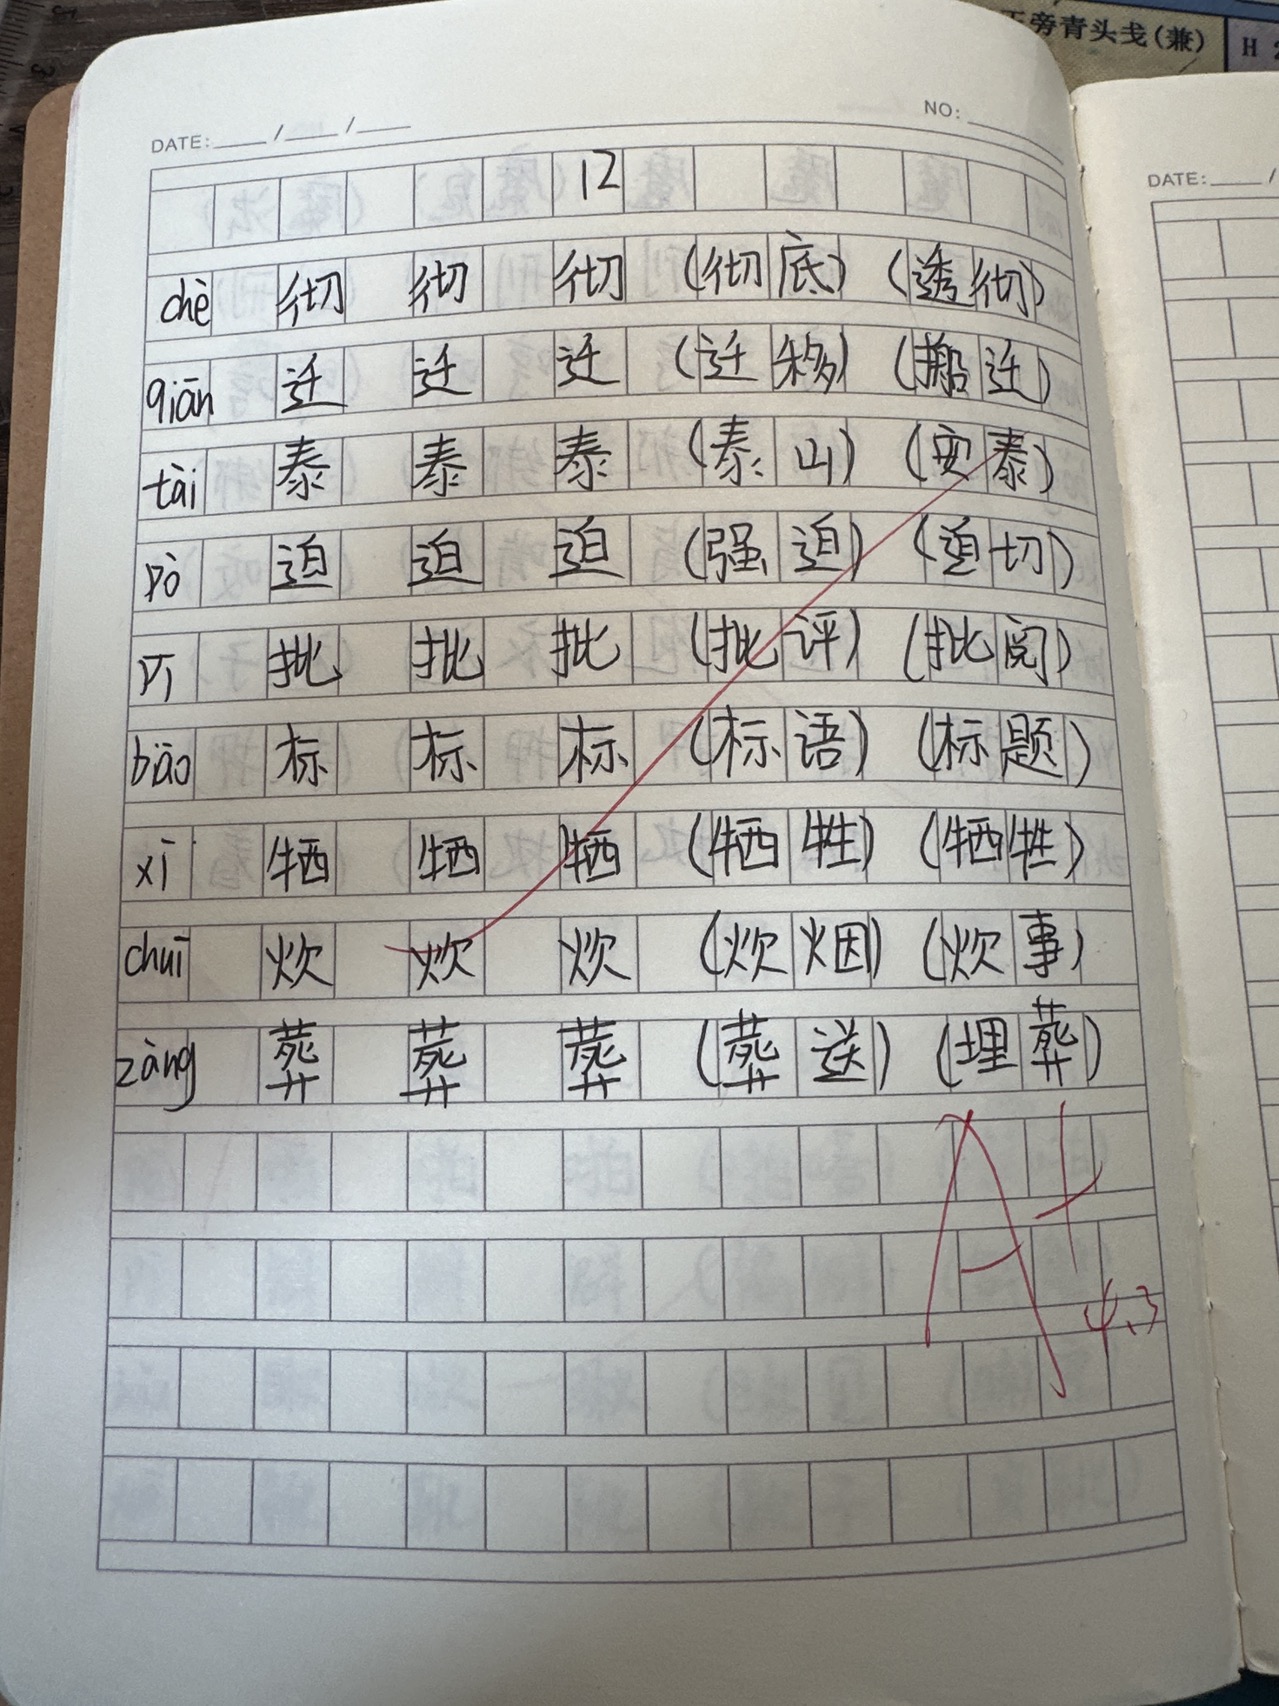 正旁青头戋(兼) H
DATE: / / NO:
12
chè 彻 彻 彻 (彻底) (透彻)
qiān 迁 迁 迁 (迁移) (搬迁)
tài 泰 泰 泰 (泰山) (安泰)
pò 迫 迫 迫 (强迫) (迫切)
pī 批 批 批 (批评) (批阅)
biāo 标 标 标 (标语) (标题)
xī 牺 牺 牺 (牺牲) (牺牲)
chuī 炊 炊 炊 (炊烟) (炊事)
zàng 葬 葬 葬 (葬送) (埋葬)
A+
4.3
DATE: /